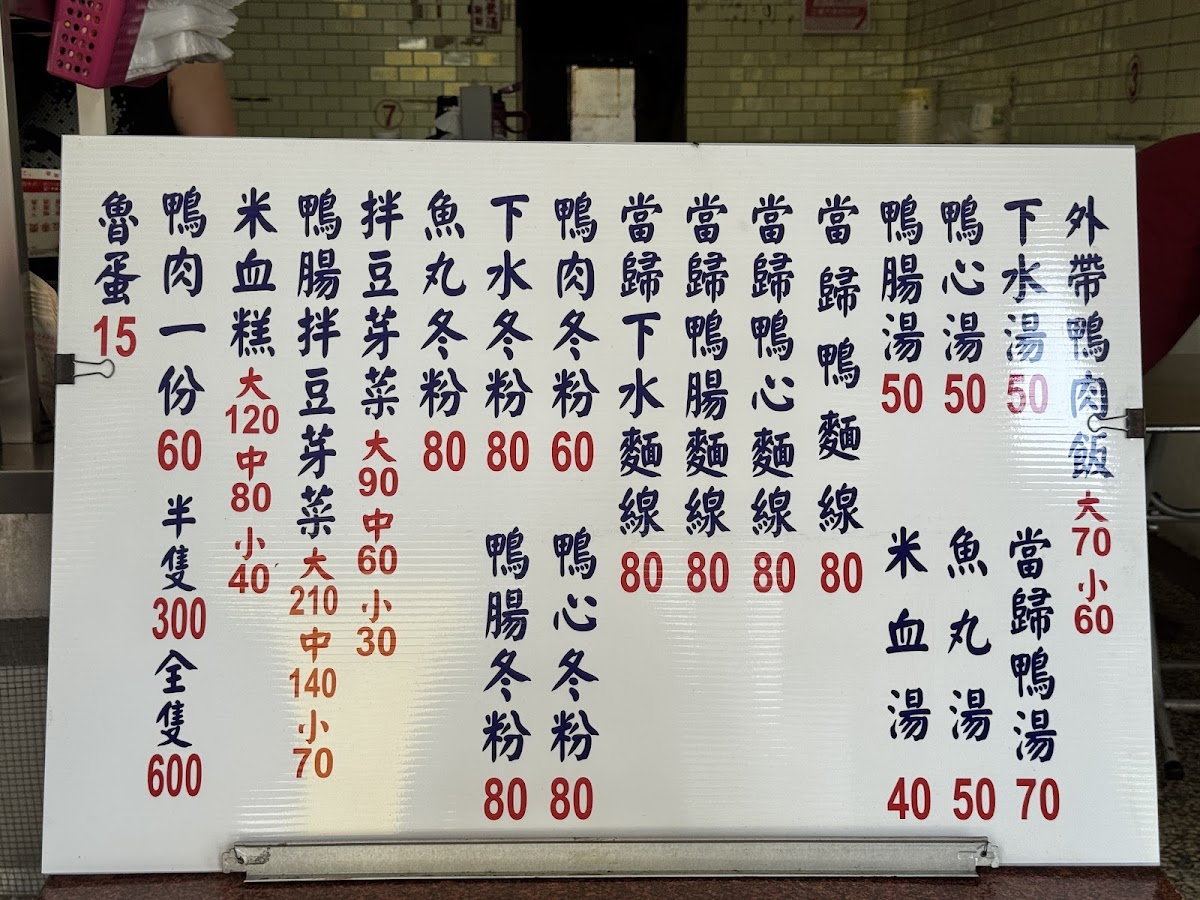 外帶鴨肉飯 大70 小60
下水湯 50
當歸鴨湯 70
鴨心湯 50
魚丸湯 50
鴨腸湯 50
米血湯 40
當歸鴨麵線 80
當歸鴨心麵線 80
當歸鴨腸麵線 80
當歸下水麵線 80
鴨肉冬粉 60
鴨心冬粉 80
下水冬粉 80
鴨腸冬粉 80
魚丸冬粉 80
拌豆芽菜 大90 中60 小30
鴨腸拌豆芽菜 大210 中140 小70
米血糕 大120 中80 小40
鴨肉一份 60 半隻 300 全隻 600
魯蛋 15
7
3